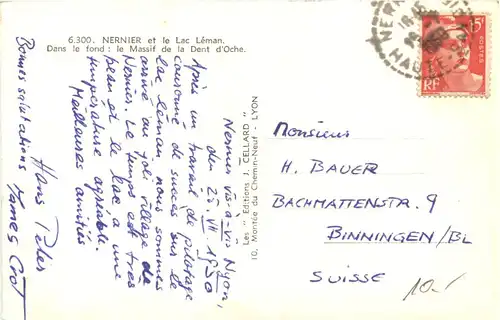 6.300. NERNIER et le Lac Léman.
Dans le fond : le Massif de la Dent d'Oche.
Nernier vis-à-vis Nyon,
den 25. VII. 1950
Après un travail de pilotage
couronné de succès sur le
lac Léman nous sommes
arrivé au joli village de
Nernier. Le temps est très
beau et le lac a une
température agréable.
Meilleures amitiés
Hans Peter
Bonnes salutations
James
Les "Editions J. CELLARD"
10, Montée du Chemin-Neuf - LYON
NERNIER
HAUTE-SAVOIE
15F
POSTES
RF
Monsieur
H. BAUER
BACHMATTENSTR. 9
BINNINGEN/BL
SUISSE
10.-